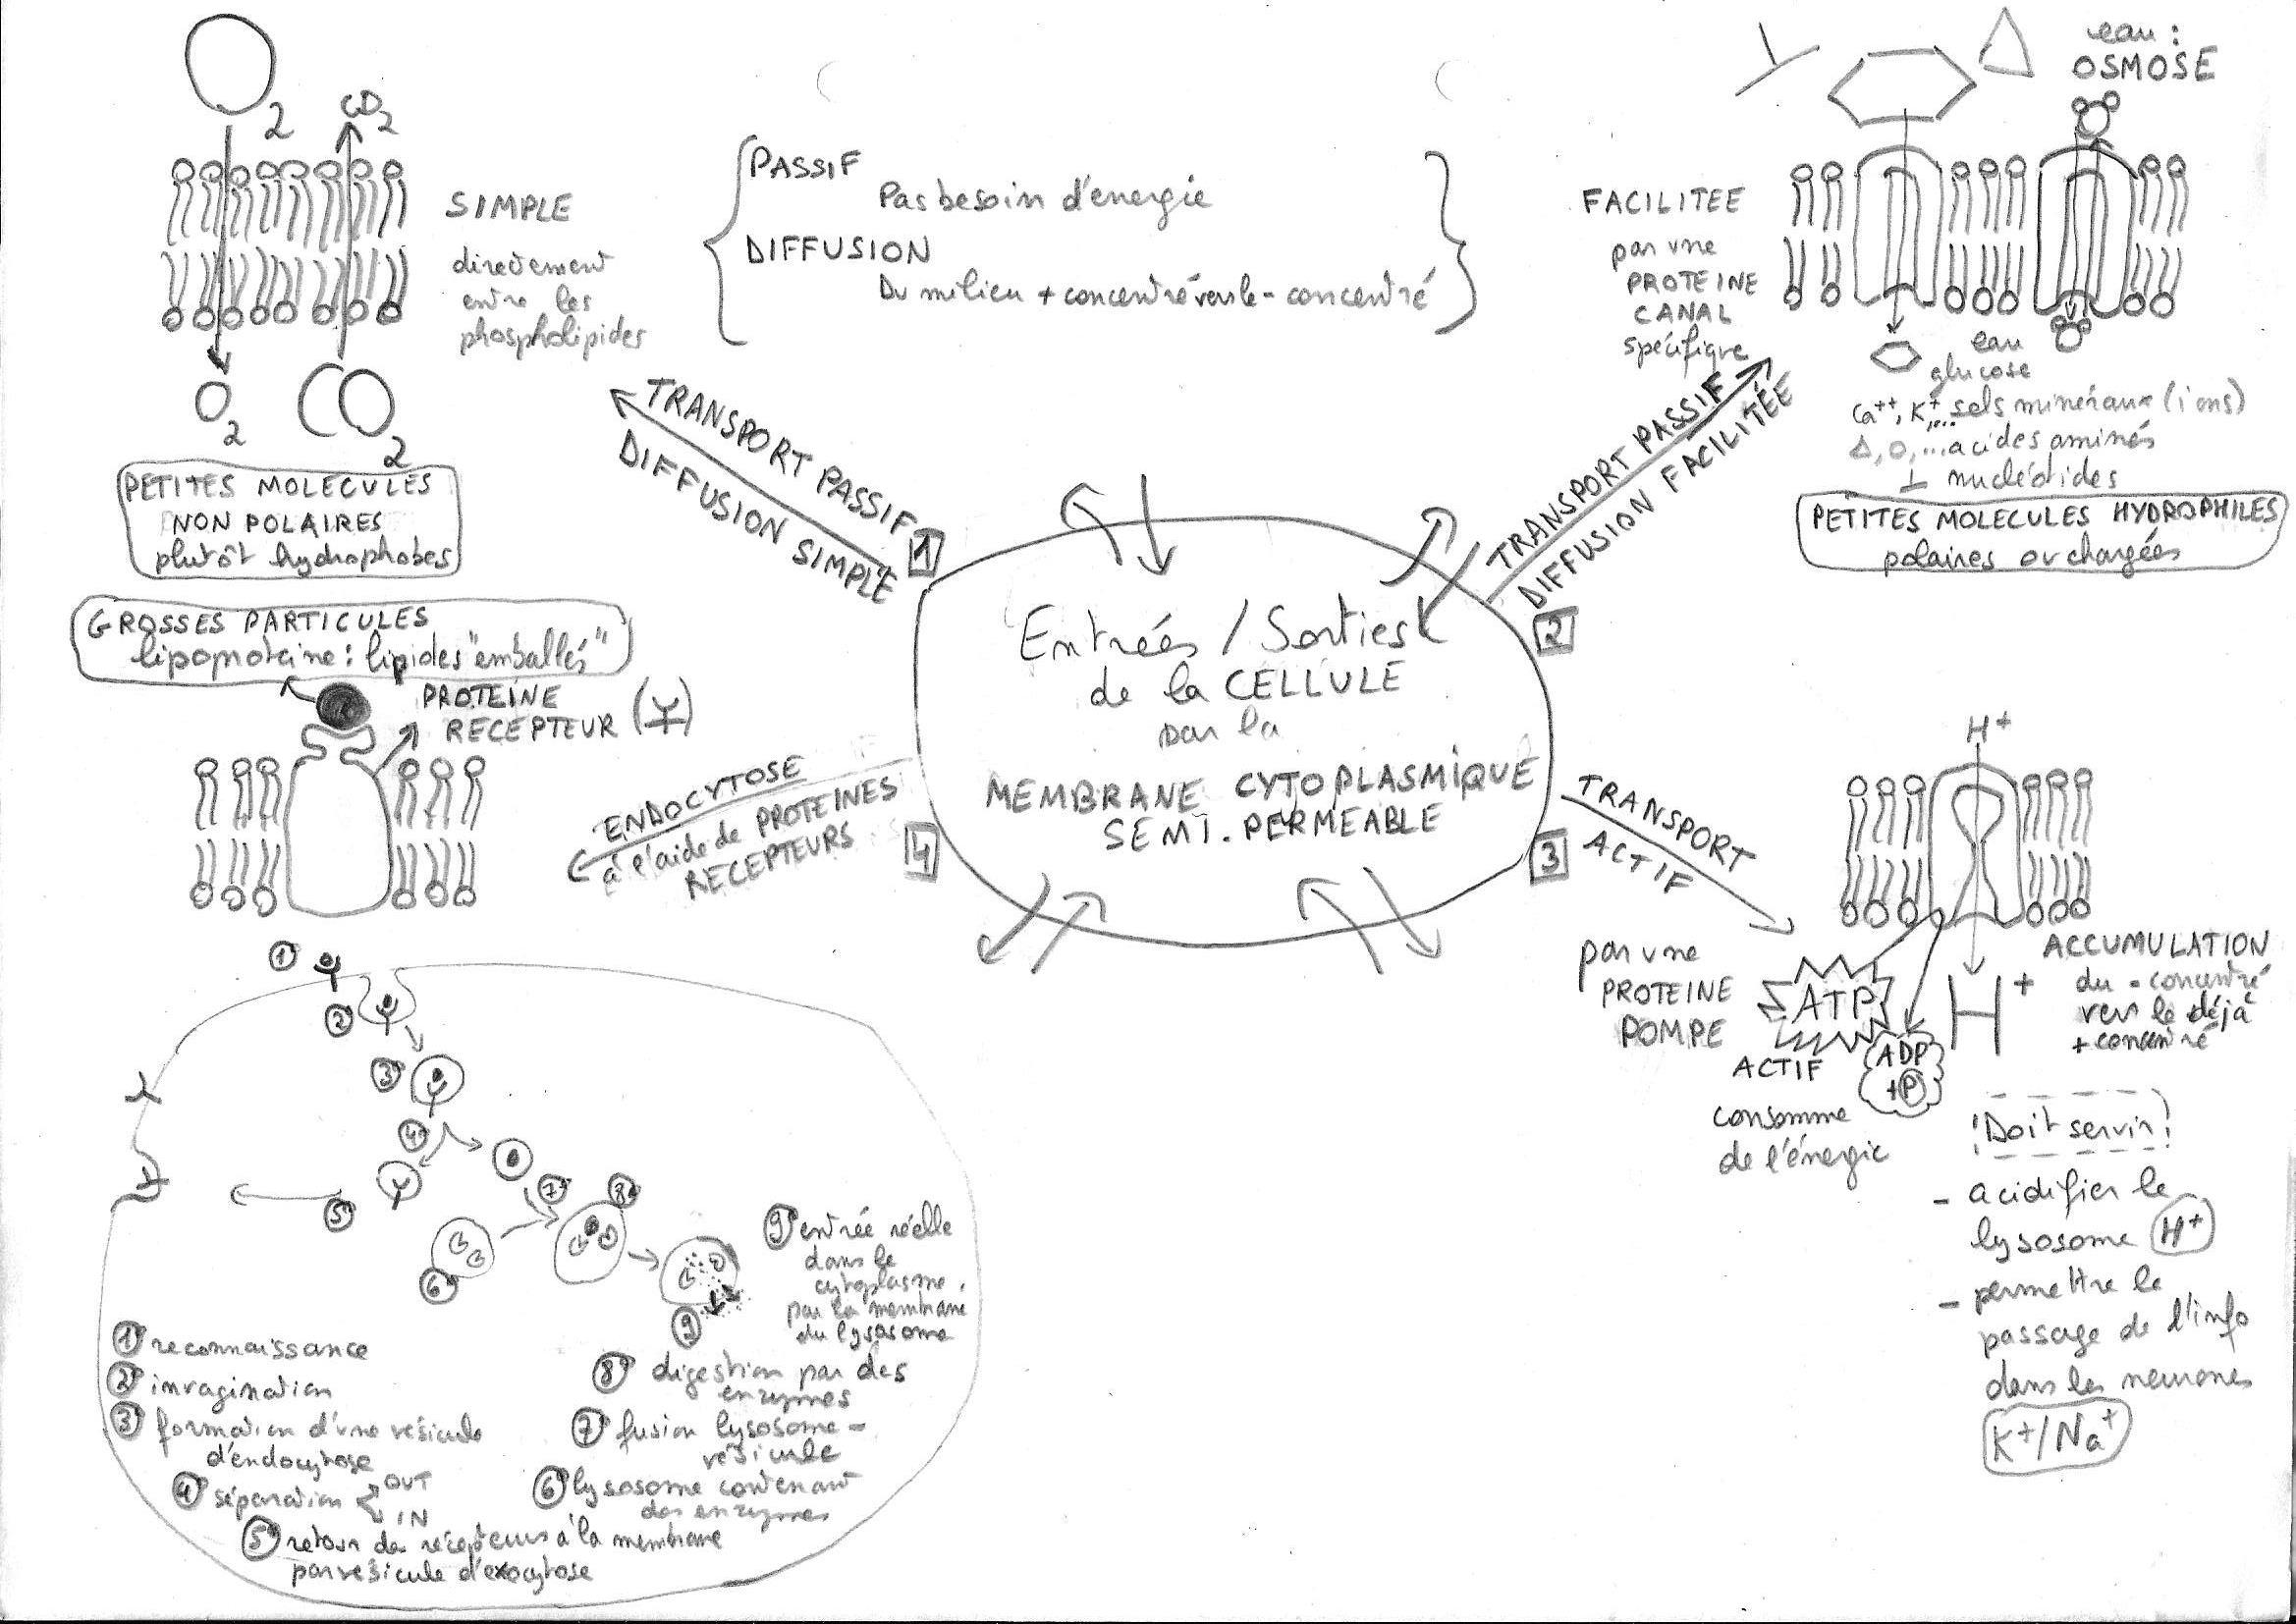 O2
CO2
SIMPLE
directement
entre les
phospholipides
O2
CO2
PETITES MOLECULES
NON POLAIRES
plutôt hydrophobes
PASSIF
Pas besoin d'énergie
DIFFUSION
Du milieu + concentré vers le - concentré
eau :
OSMOSE
FACILITEE
par une
PROTEINE
CANAL
spécifique
eau
glucose
Ca++, K+,... sels minéraux (ions)
Δ, O, ... acides aminés
⊥ nucléotides
PETITES MOLECULES HYDROPHILES
polaires ou chargées
TRANSPORT PASSIF
DIFFUSION SIMPLE
1
TRANSPORT PASSIF
DIFFUSION FACILITÉE
2
Entrées / Sorties
de la CELLULE
par la
MEMBRANE CYTOPLASMIQUE
SEMI-PERMEABLE
GROSSES PARTICULES
lipoproteine : lipides "emballés"
PROTEINE
RECEPTEUR (Y)
ENDOCYTOSE
à l'aide de PROTEINES
RECEPTEURS
4
3
TRANSPORT
ACTIF
H+
par une
PROTEINE
POMPE
ATP
ACTIF
ADP
+P
consomme
de l'énergie
H+
ACCUMULATION
du - concentré
vers le déjà
+ concentré
Doit servir
- acidifier le
lysosome H+
- permettre le
passage de l'info
dans les neurones
K+/Na+
1
2
3
4
5
6
7
8
9
9 entrée réelle
dans le
cytoplasme
par la membrane
du lysosome
1 reconnaissance
2 invagination
3 formation d'une vésicule
d'endocytose
4 séparation OUT
IN
5 retour des récepteurs à la membrane
par vésicule d'exocytose
6 lysosome contenant
des enzymes
7 fusion lysosome -
vésicule
8 digestion par des
enzymes